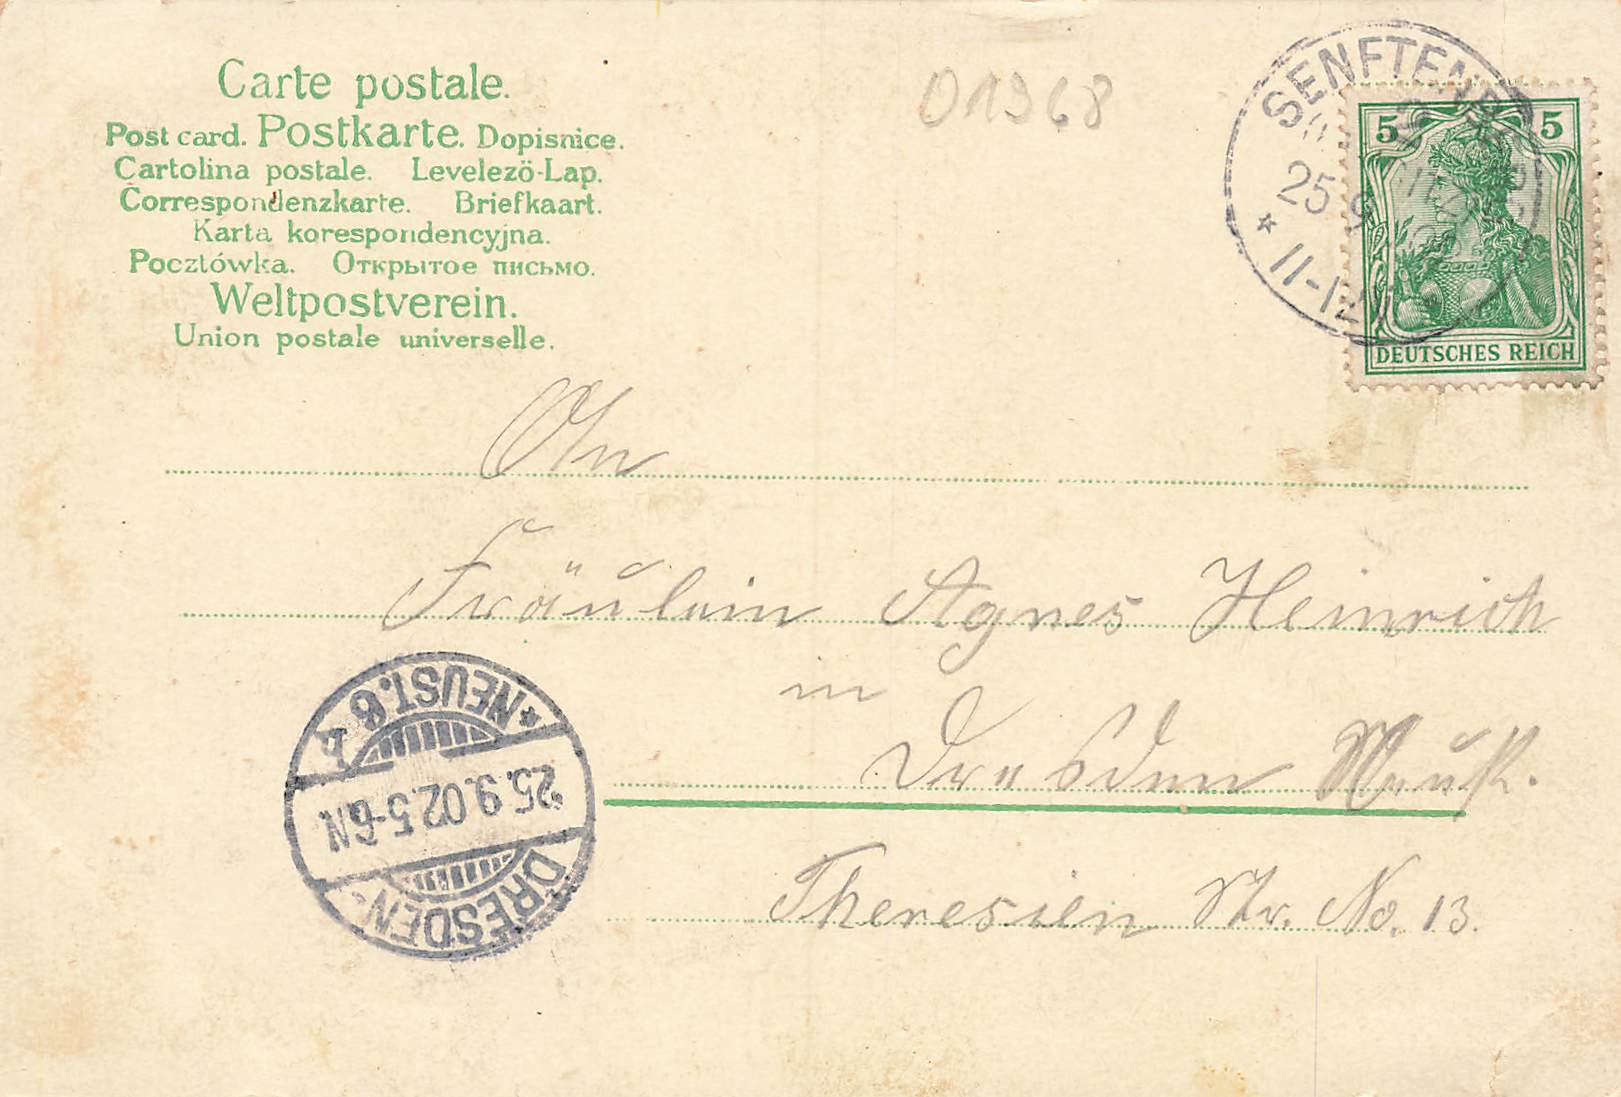 Carte postale.
Post card. Postkarte. Dopisnice.
Cartolina postale. Levelező-Lap.
Correspondenzkarte. Briefkaart.
Karta korespondencyjna.
Pocztówka. Открытое письмо.
Weltpostverein.
Union postale universelle.
01968
SENFTENBERG
25 9
* 11-12
5 5
DEUTSCHES REICH
An
Fräulein Agnes Heinrich
in
Dresden Neust.
Theresien Str. No. 13.
DRESDEN-
25.9.02.5-6N
*NEUST.6 b